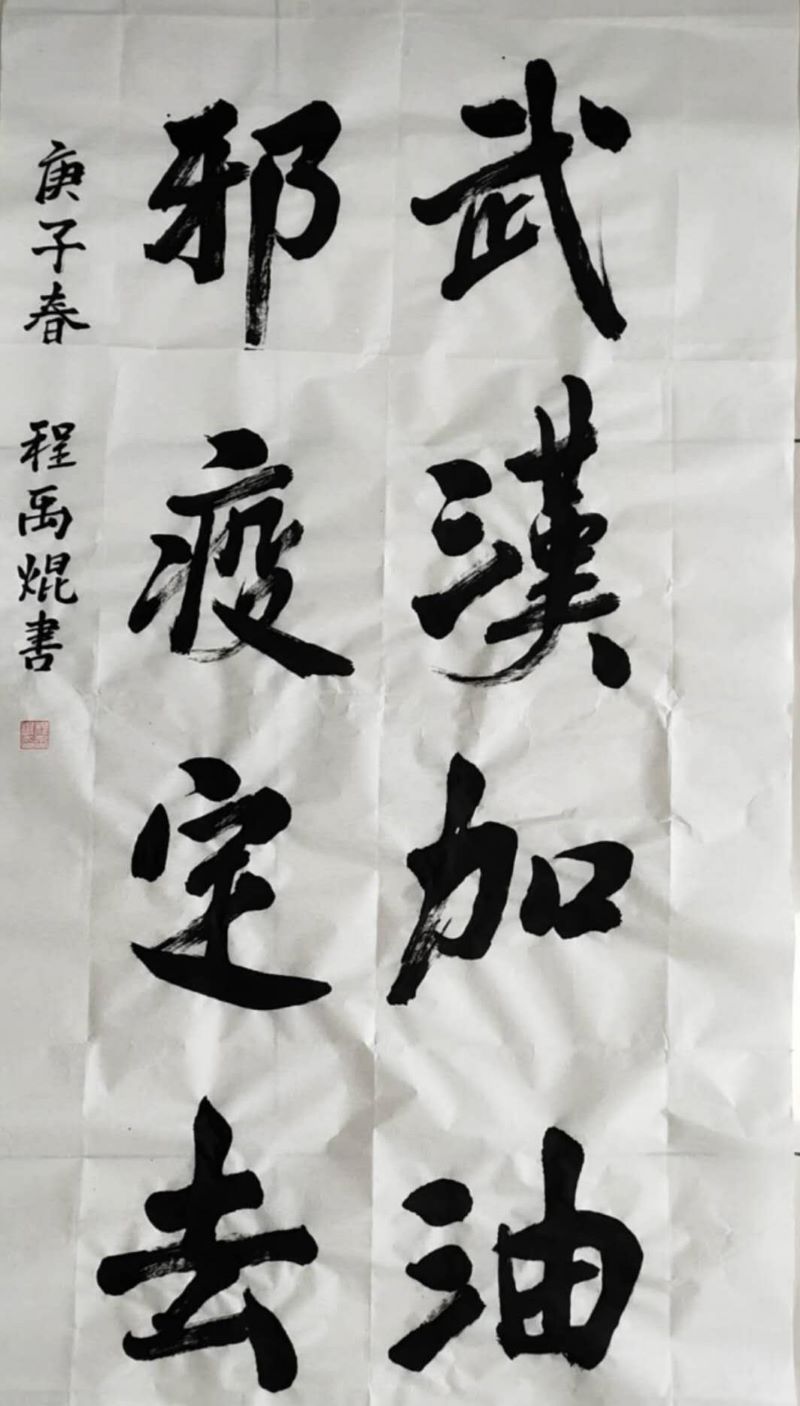 武漢加油
邪疫定去
庚子春 程禹焜書